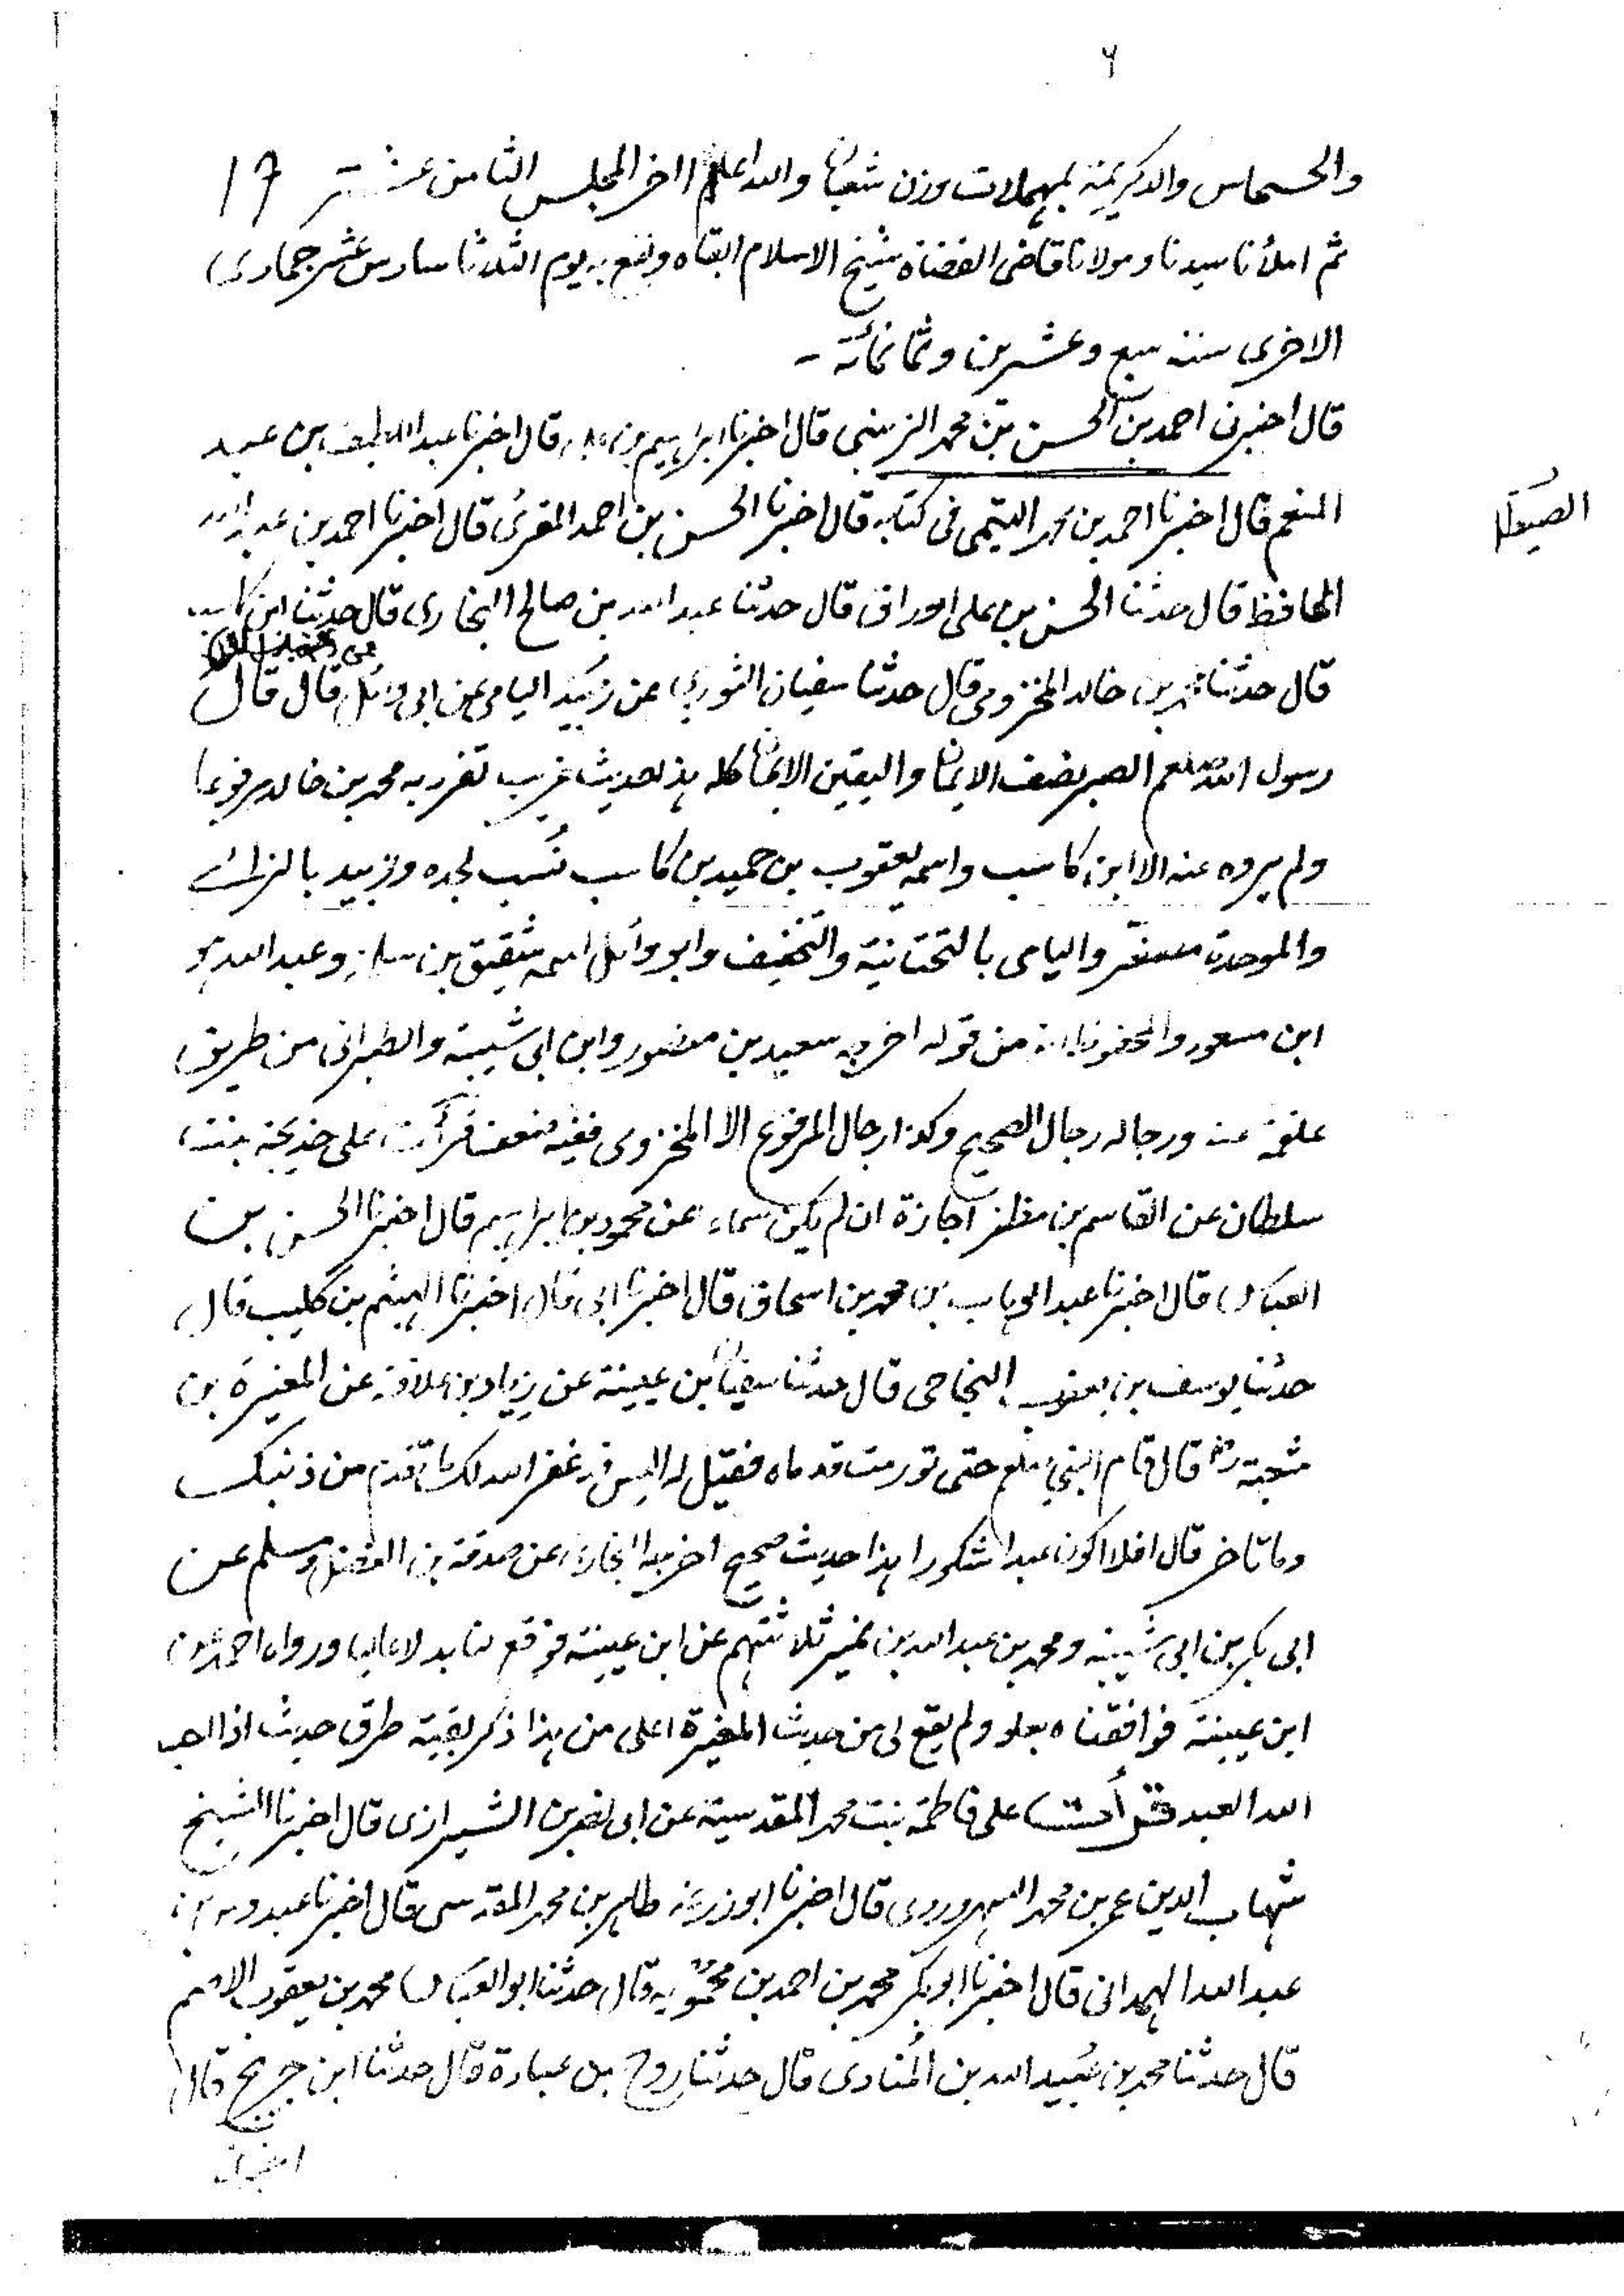 ٦
والحسحاس والد كريمة بمهملات بوزن شعبان والله اعلم اخر المجلس الثامن عشر ١٦
ثم املأنا سيدنا ومولانا قاضى القضاة شيخ الاسلام ابقاه ونفع به يوم الثلاثا سادس عشر جمادى
الاخرى سنة سبع وعشرين وثمانمائة -
قال اخبرنى احمد بن الحسن بن محمد الزينبى قال اخبرنا ابراهيم بن على قال اخبرنا عبد اللطيف بن عبد
المنعم قال اخبرنا احمد بن محمد التيمى فى كتابه قال اخبرنا الحسن بن احمد المقرئ قال اخبرنا احمد بن عبد الله
الحافظ قال حدثنا الحسن بن على الوراق قال حدثنا عبد الله بن صالح البخارى قال حدثنا ابن كاسب
قال حدثنا محمد بن خالد المخزومى قال حدثنا سفيان الثورى عن زُبَيْد اليامى عن ابى وائل قال قال
رسول الله صلعم الصبر نصف الايمان واليقين الايمان كله هذا حديث غريب تفرد به محمد بن خالد مرفوعا
ولم يروه عنه الا ابن كاسب واسمه يعقوب بن حميد بن كاسب نُسب لجده وزبيد بالزاى
والموحدة مصغر واليامى بالتحتانية والتخفيف وابو وائل اسمه شقيق بن سلمة وعبد الله هو
ابن مسعود والمحفوظ انه من قوله اخرجه سعيد بن منصور وابن ابى شيبة والطبرانى من طريق
علقمة عنه ورجاله رجال الصحيح وكذا رجال المرفوع الا المخزومى ففيه ضعف قرأت على خديجة بنت
سلطان عن القاسم بن مظفر اجازة ان لم يكن سماعا عن محمود بن ابراهيم قال اخبرنا الحسن بن
العباس قال اخبرنا عبد الوهاب بن محمد بن اسحاق قال اخبرنا ابى قال اخبرنا الهيثم بن كليب قال
حدثنا يوسف بن يعقوب النجاحى قال حدثنا سفيان بن عيينة عن زياد بن علاقة عن المغيرة بن
شعبة رض قال قام النبى صلعم حتى تورمت قدماه فقيل له اليس قد غفر الله لك ما تقدم من ذنبك
وما تاخر قال افلا اكون عبدا شكورا هذا حديث صحيح اخرجه البخارى عن صدقة بن الفضل ومسلم عن
ابى بكر بن ابى شيبة ومحمد بن عبد الله بن نمير ثلاثتهم عن ابن عيينة فوقع لنا بدلا عاليا ورواه احمد عن
ابن عيينة فوافقناه بعلو ولم يقع لى من حديث المغيرة اعلى من هذا ذكر بقية طرق حديث اذا احب
الله العبد قرأت على فاطمة بنت محمد المقدسية عن ابى نصر بن الشيرازى قال اخبرنا الشيخ
شهاب الدين عمر بن محمد السهروردى قال اخبرنا ابو زرعة طاهر بن محمد المقدسى قال اخبرنا عبدوس بن
عبد الله الهمدانى قال اخبرنا ابو بكر محمد بن احمد بن محمويه قال حدثنا ابو العباس محمد بن يعقوب الاصم
قال حدثنا محمد بن عُبيد الله بن المُنادى قال حدثنا روح بن عبادة قال حدثنا ابن جريج قال